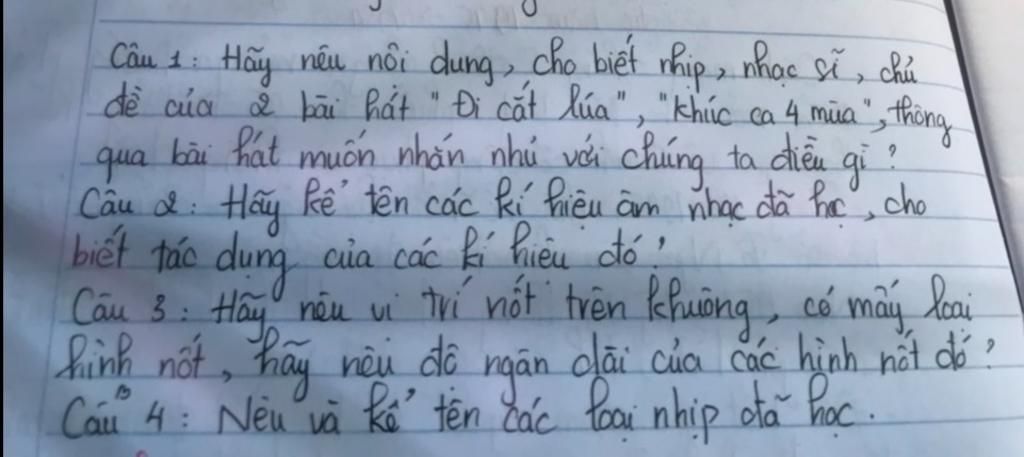 Câu 1: Hãy nêu nội dung, cho biết nhịp, nhạc sĩ, chủ
đề của 2 bài hát "Đi cắt lúa", "Khúc ca 4 mùa", thông
qua bài hát muốn nhắn nhủ với chúng ta điều gì?
Câu 2: Hãy kể tên các kí hiệu âm nhạc đã học, cho
biết tác dụng của các kí hiệu đó?
Câu 3: Hãy nêu vị trí nốt trên khuông, có mấy loại
hình nốt, hãy nêu độ ngân dài của các hình nốt đó?
Câu 4: Nêu và kể tên các loại nhịp đã học.